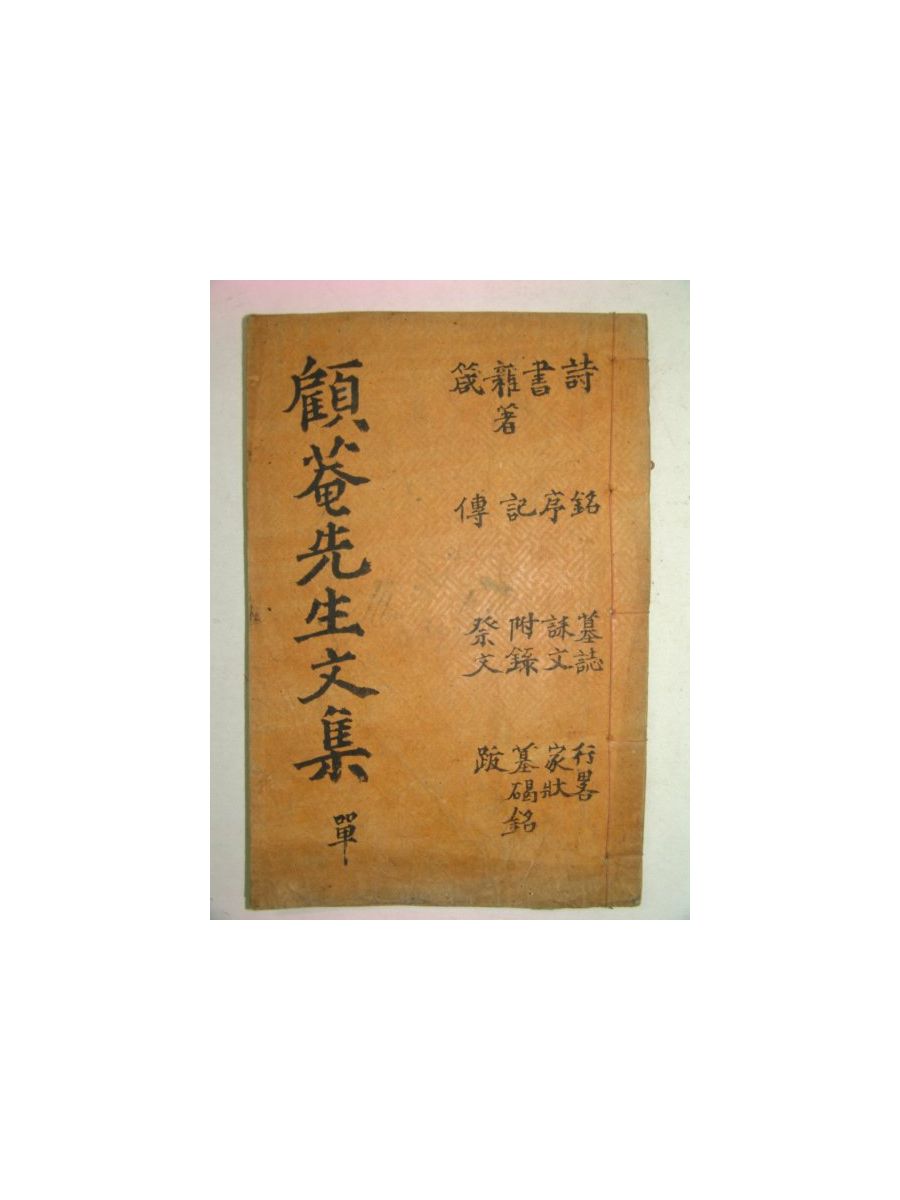 詩
書
雜著
箴
銘
序
記
傳
墓誌
誄文
附錄
祭文
行畧
家狀
墓碣銘
跋
顧菴先生文集 單